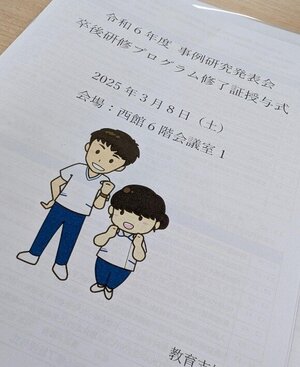 令和６年度 事例研究発表会
卒後研修プログラム修了証授与式
2025 年 3 月 8 日（土）
会場：西館 6 階会議室 1
教育支